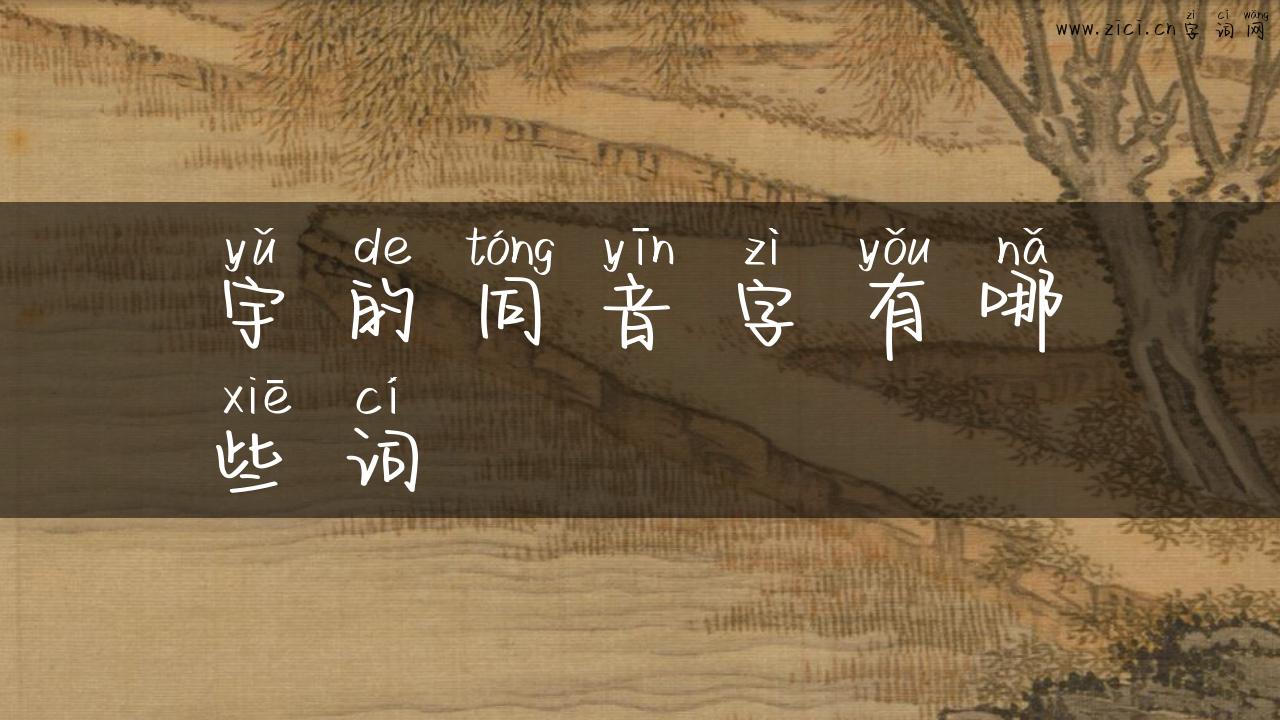 zì cí wǎng
www.zici.cn字词网
yǔ de tóng yīn zì yǒu nǎ
宇的同音字有哪
xiē cí
些词